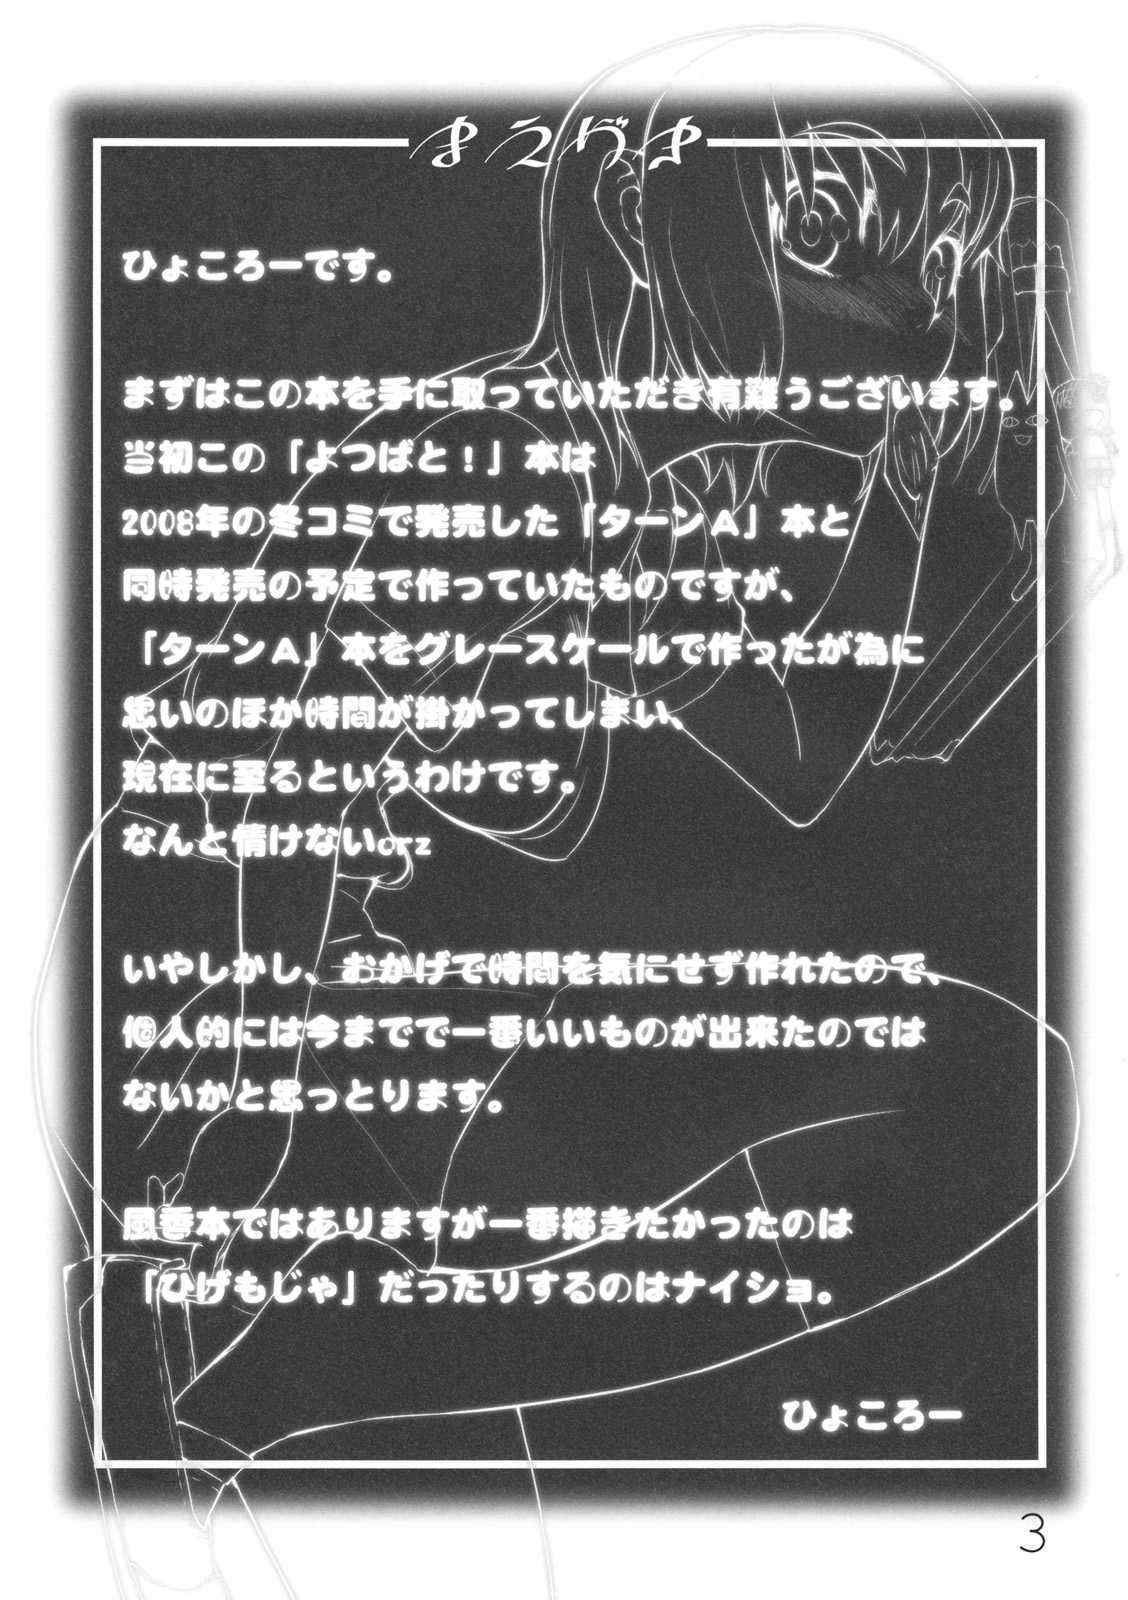 まえがき
ひょころーです。
まずはこの本を手に取っていただき有難うございます。
当初この「よつばと！」本は
2008年の冬コミで発売した「ターンA」本と
同時発売の予定で作っていたものですが、
「ターンA」本をグレースケールで作ったが為に
思いのほか時間が掛かってしまい、
現在に至るというわけです。
なんと情けないorz
いやしかし、おかげで時間を気にせず作れたので、
個人的には今までで一番いいものが出来たのでは
ないかと思っとります。
風香本ではありますが一番描きたかったのは
「ひげもじゃ」だったりするのはナイショ。
ひょころー
3